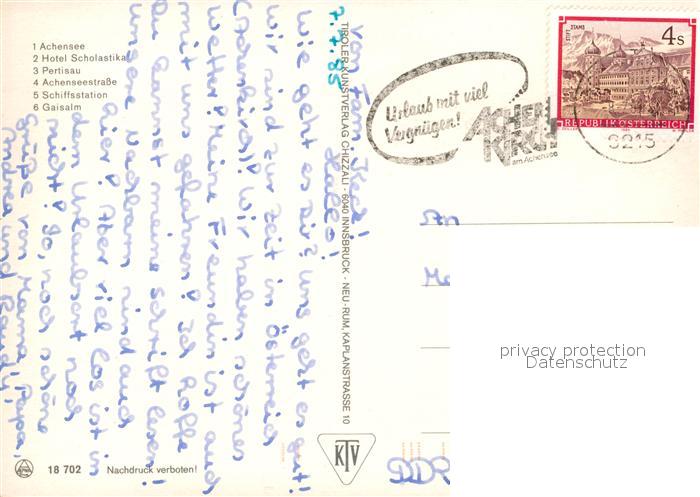 1 Achensee
2 Hotel Scholastika
3 Pertisau
4 Achenseestraße
5 Schiffsstation
6 Gaisalm
7.7.85
von Fam.
Hallo!
Wie geht es dir? Uns geht es gut!
Wir sind zur Zeit in Österreich
(Achenkirch)! Wir haben schönes
Wetter! Meine Freundin ist auch
mit uns gefahren! Ich hoffe
du kannst meine Schrift lesen!
Unsere Nachbarn sind auch
hier! Aber viel los ist in
dem Urlaubsort noch
nicht! So, noch schöne
Grüße von Mama, Papa,
Andrea und
TIROLER KUNSTVERLAG CHIZZALI · 6040 INNSBRUCK - NEU-RUM, KAPLANSTRASSE 10
Urlaub mit viel
Vergnügen!
ACHEN
KIRCH
am Achensee
STIFT STAMS
4 S
REPUBLIK ÖSTERREICH
6215
privacy protection
Datenschutz
KTV
18 702 Nachdruck verboten!